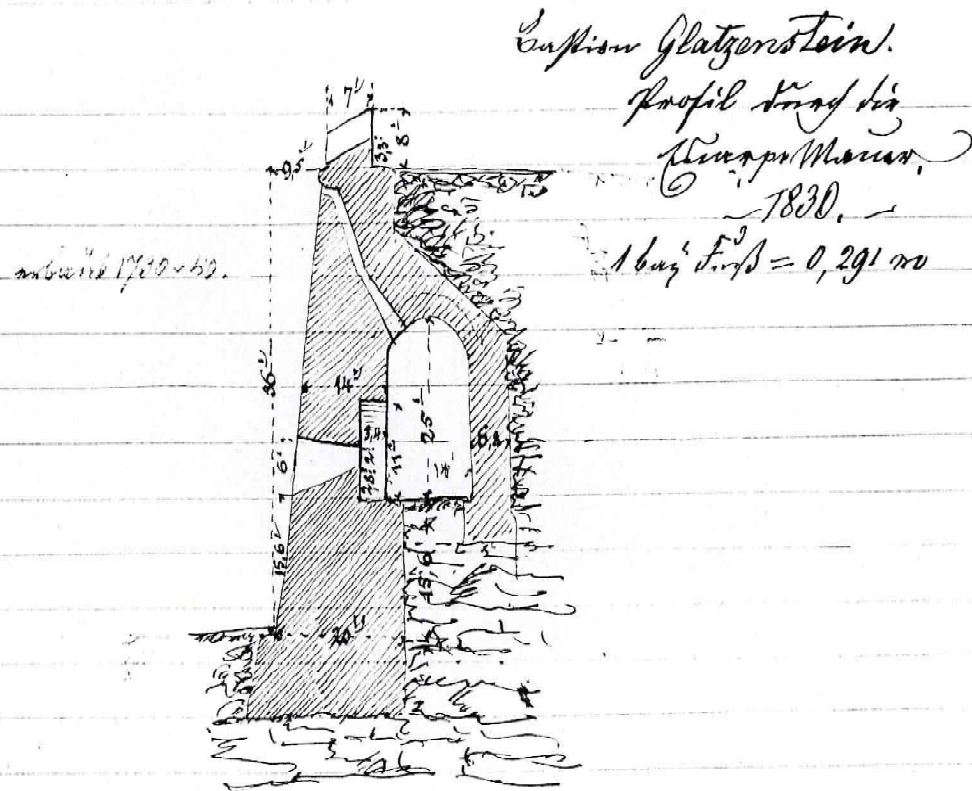 Bastion Glatzenstein.
Profil durch die
Escarpe Mauer.
1830.
1 bay Fuß = 0,291 m
erbaut 1730-40.
7'
8'
3,3'
0,5'
36'
14'
3,4
25'
11'
2'
6'
15,6'
15,6'
20'